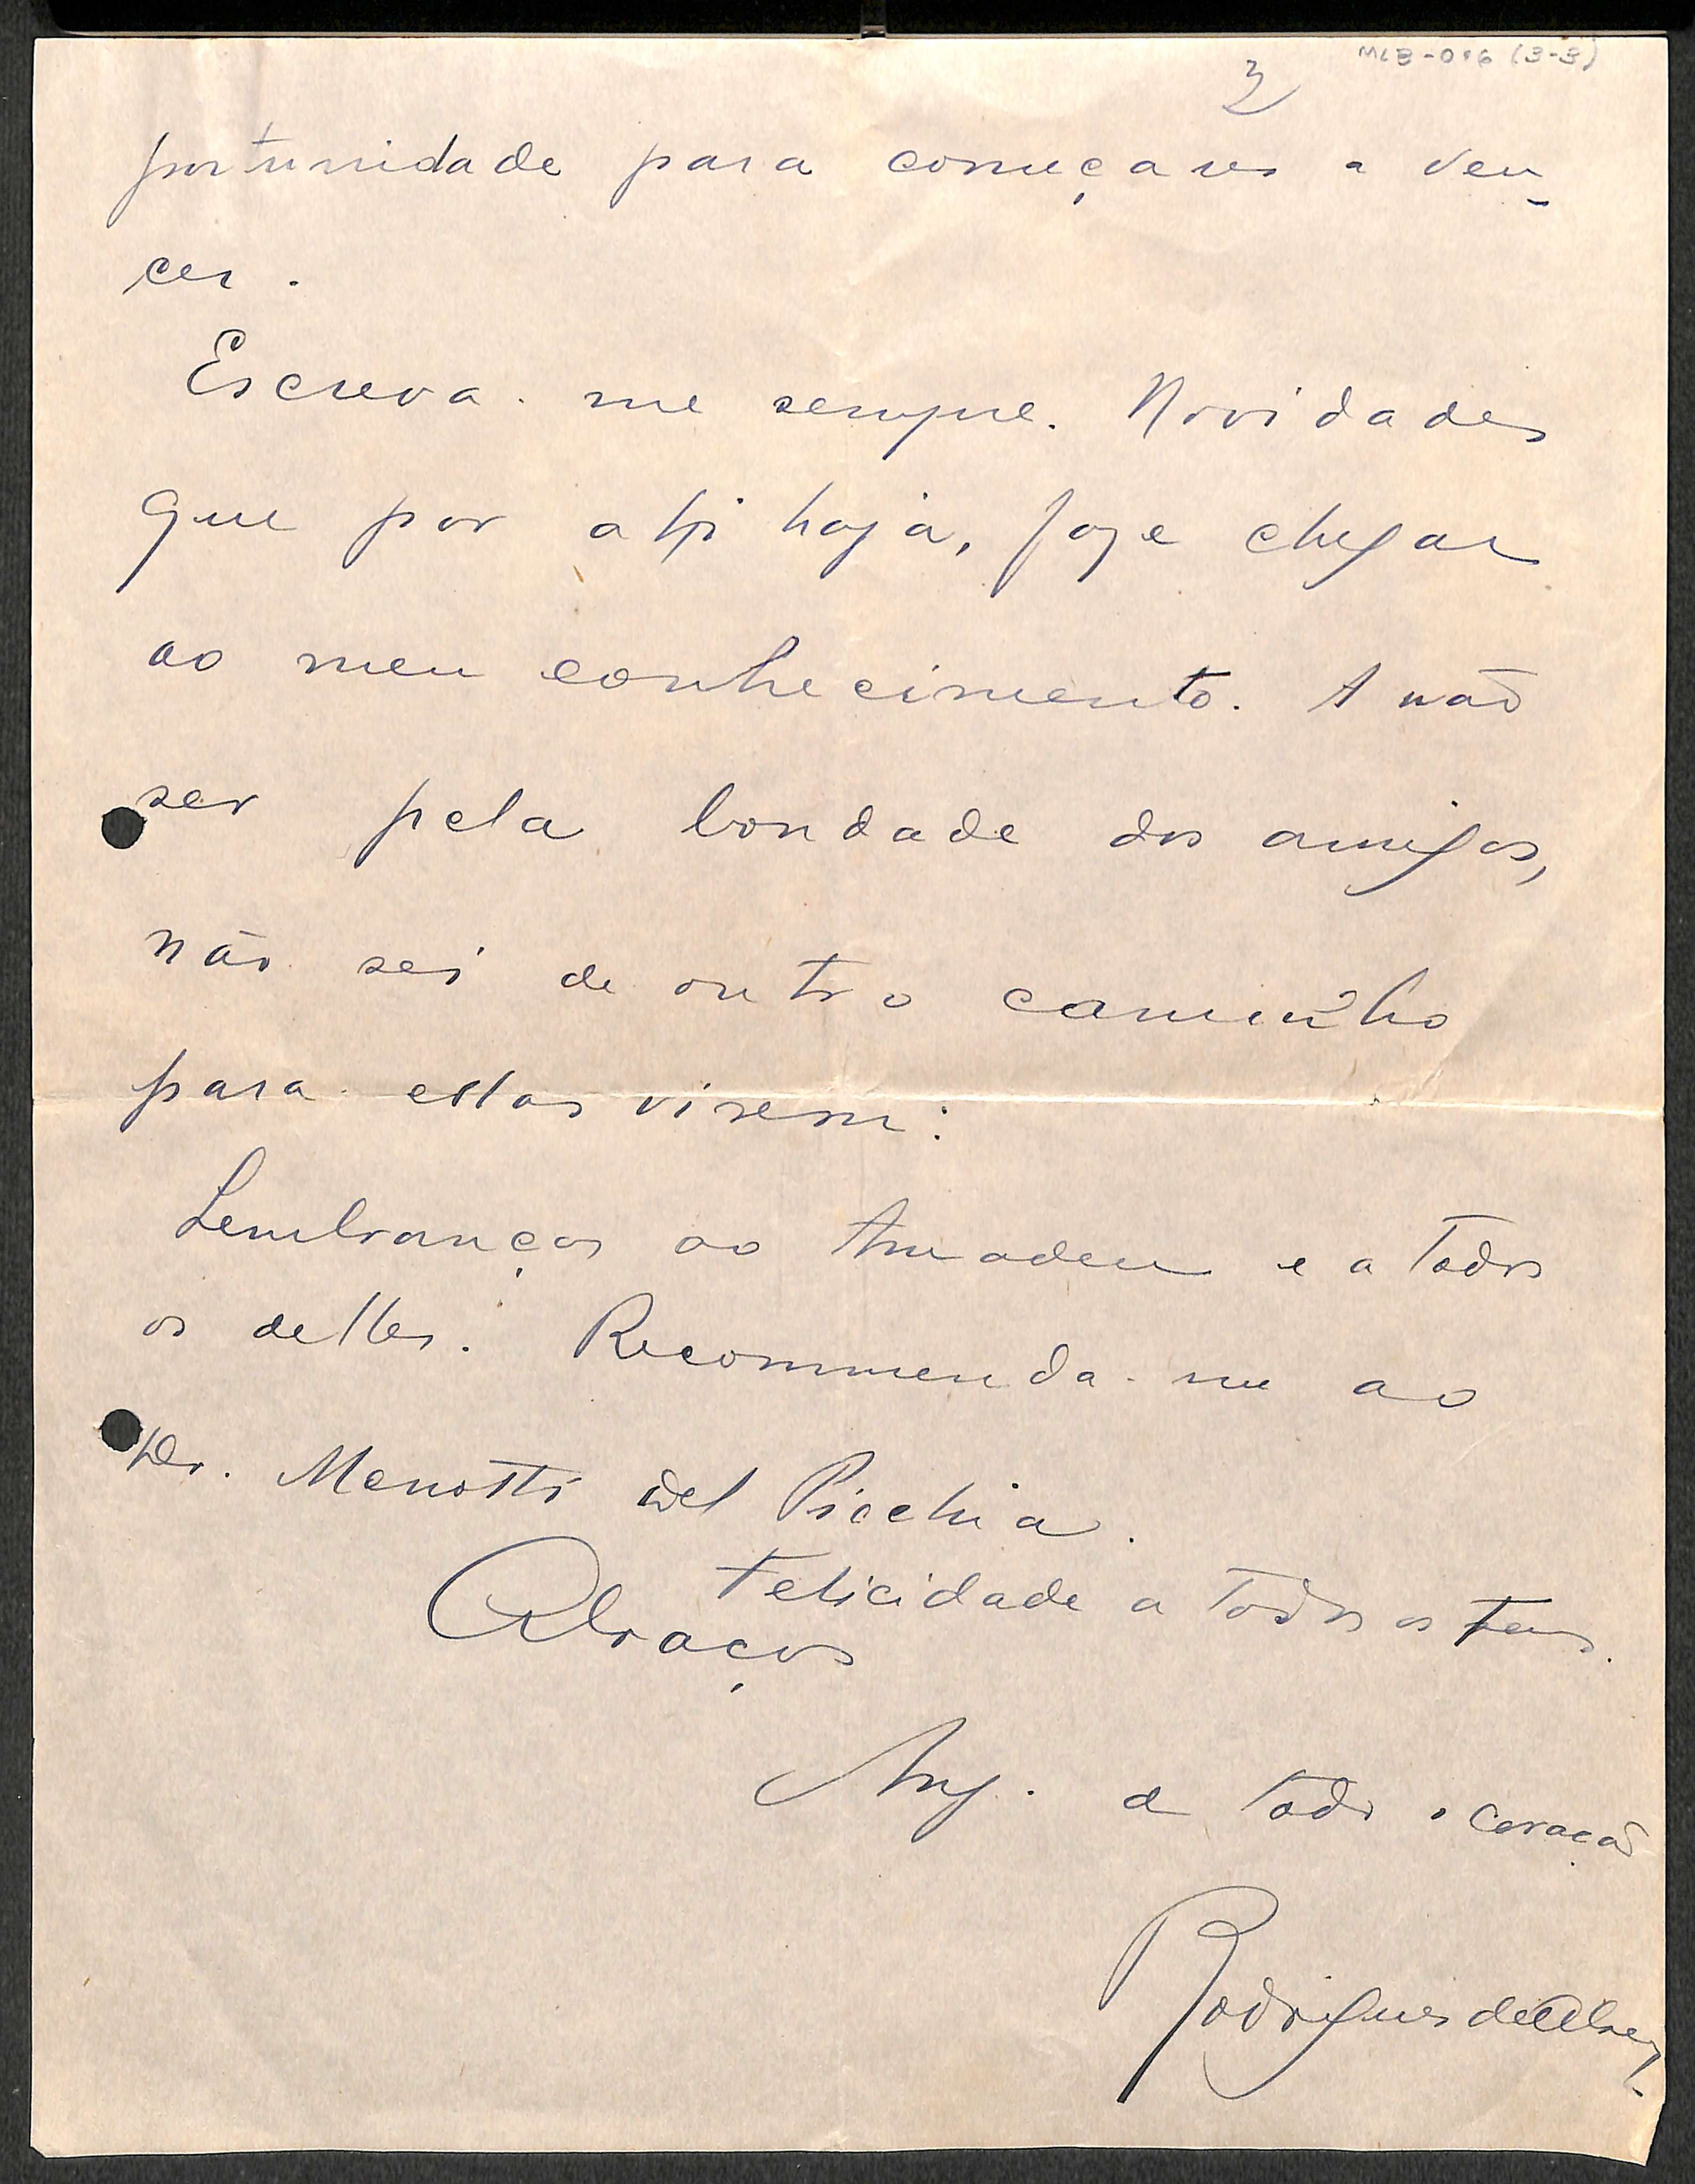 MLB-016 (3-3)
3
portunidade para começares a ven-
cer.
Escreva-me sempre. Novidades
que por ahi haja, faze chegar
ao meu conhecimento. A não
ser pela bondade dos amigos,
não sei de outro caminho
para ellas virem:
Lembranças ao Amadeu e a todos
os delles. Recommenda-me ao
Dr. Menotti del Picchia.
Felicidade a todos os teus.
Abraços
Amg. de todo o coração
Rodrigues de Abreu.